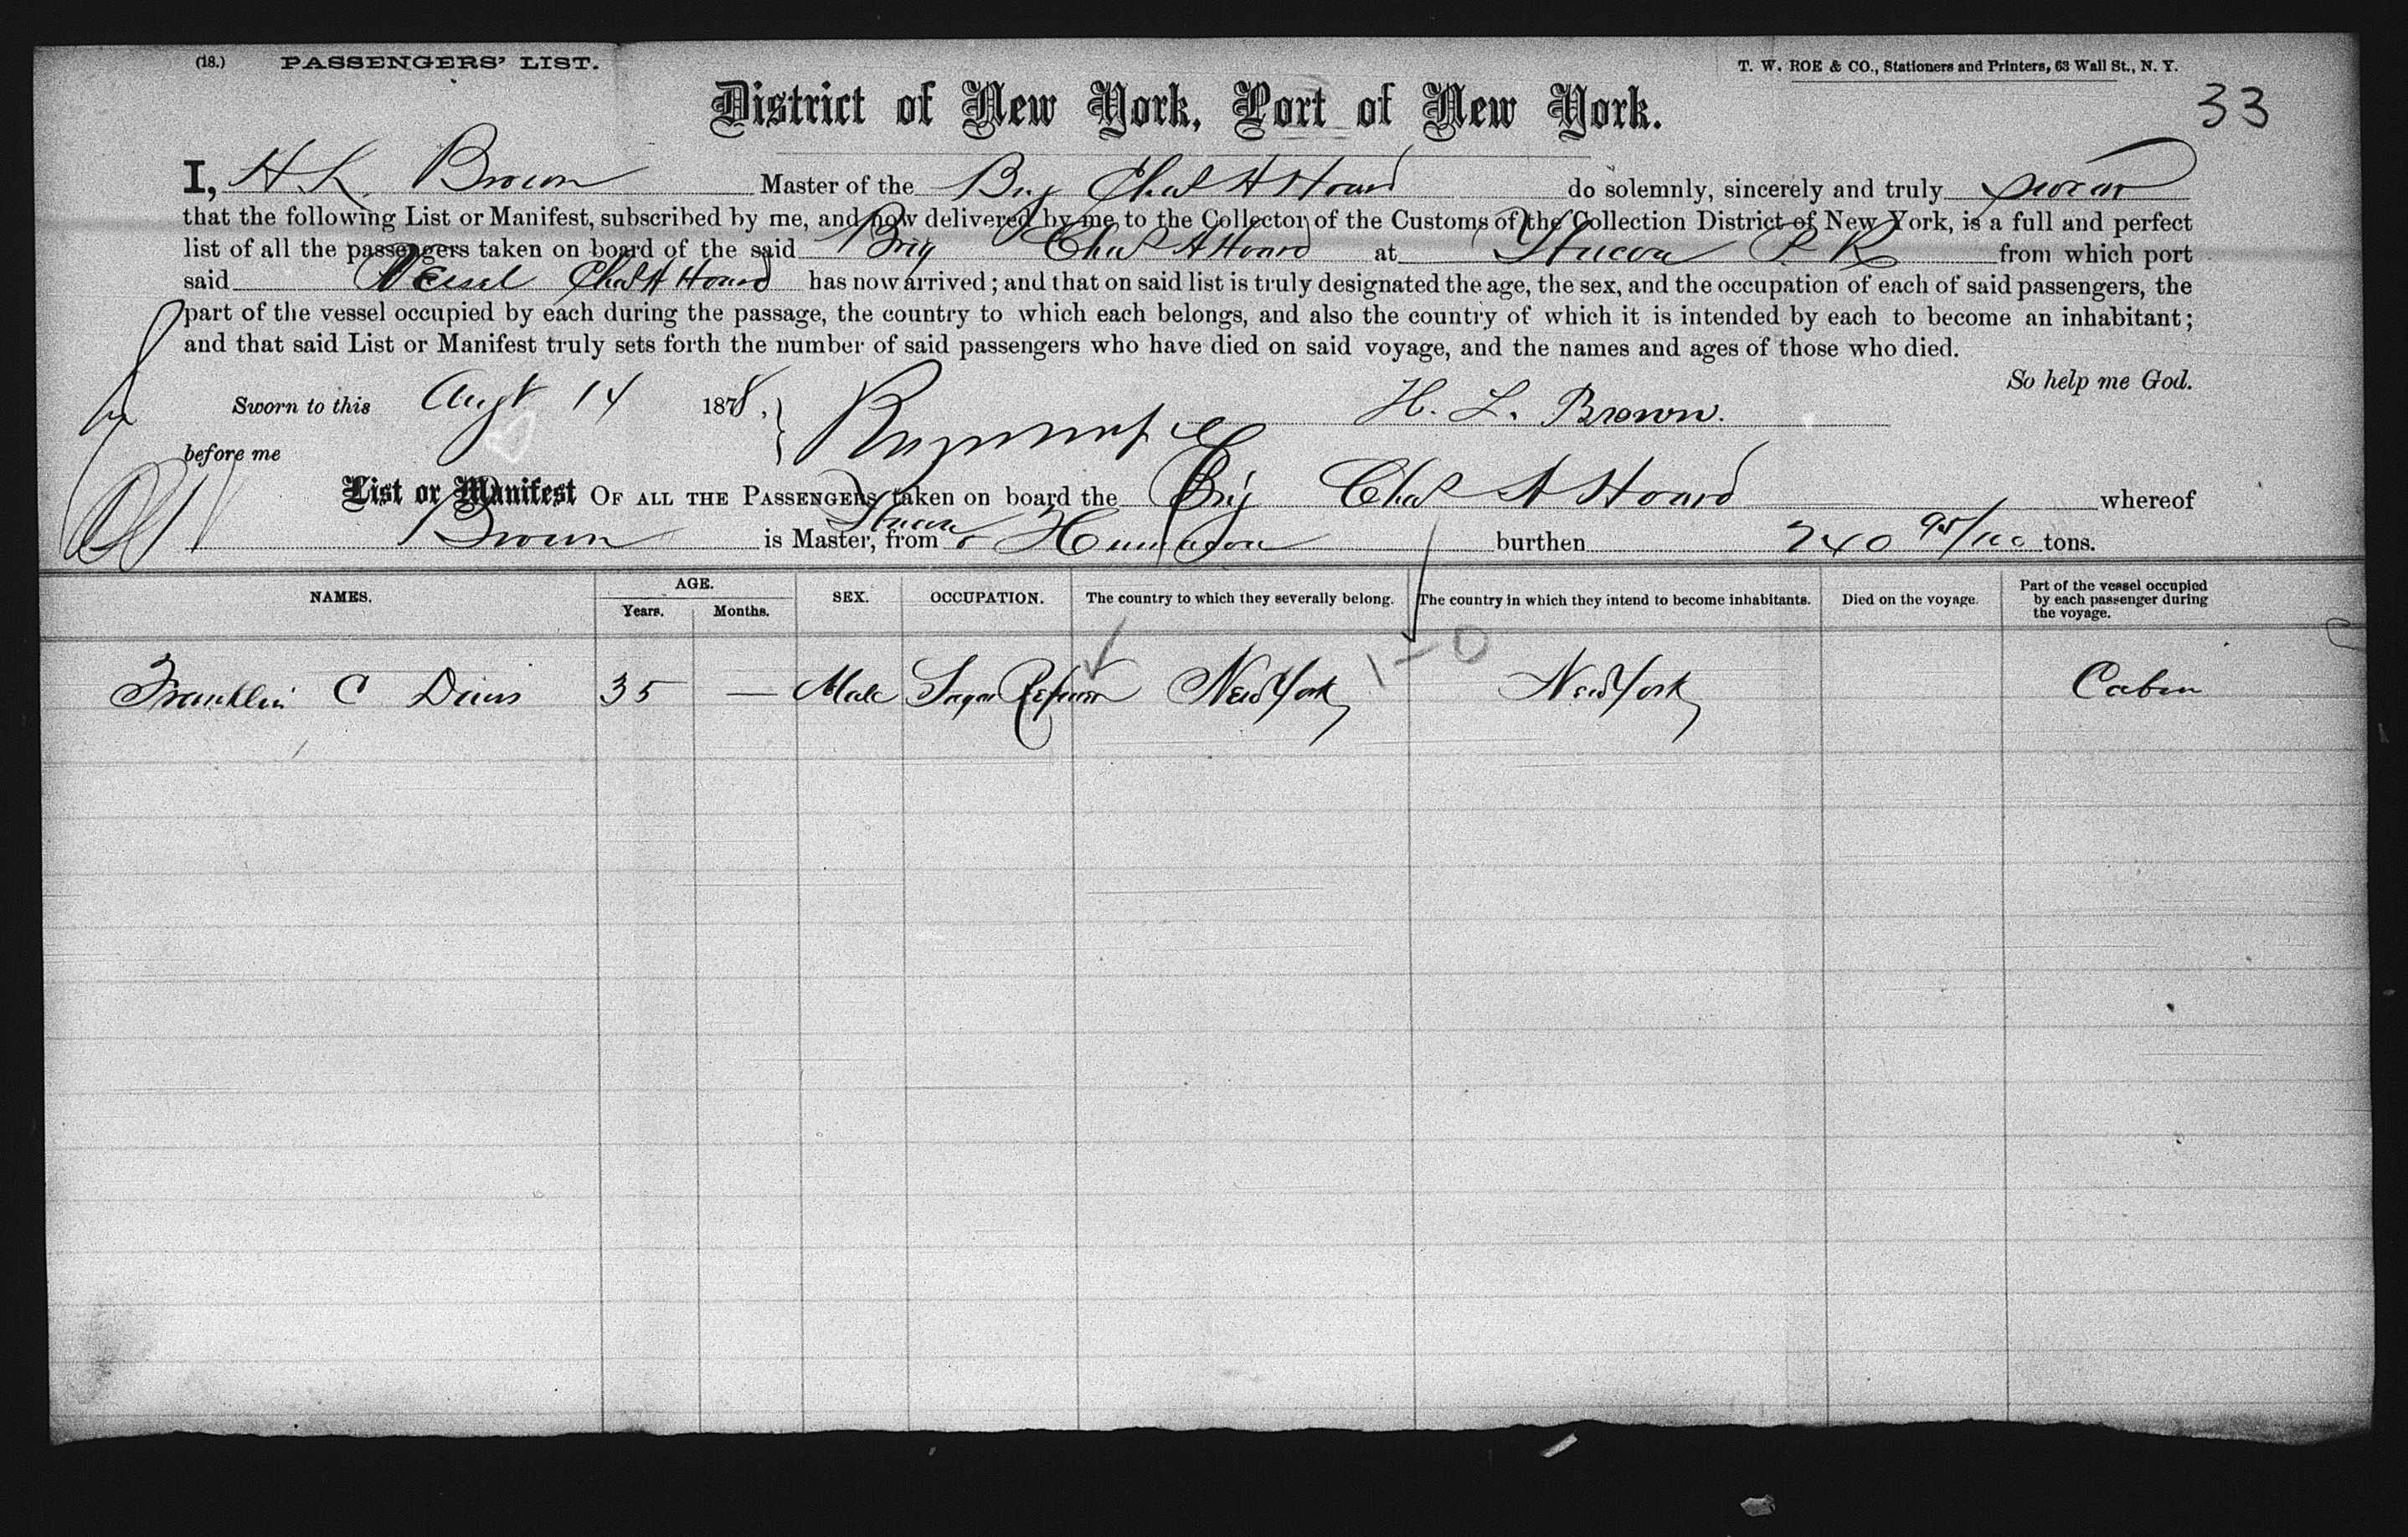 (18.) PASSENGERS' LIST. T. W. ROE & CO., Stationers and Printers, 63 Wall St., N. Y.
33
District of New York, Port of New York.
I, H. L. Brown Master of the Brig Chas A Hoard do solemnly, sincerely and truly swear
that the following List or Manifest, subscribed by me, and now delivered by me to the Collector of the Customs of the Collection District of New York, is a full and perfect
list of all the passengers taken on board of the said Brig Chas A Hoard at P. R. from which port
said Vessel Chas A Hoard has now arrived; and that on said list is truly designated the age, the sex, and the occupation of each of said passengers, the
part of the vessel occupied by each during the passage, the country to which each belongs, and also the country of which it is intended by each to become an inhabitant;
and that said List or Manifest truly sets forth the number of said passengers who have died on said voyage, and the names and ages of those who died.
So help me God.
Sworn to this Augt 14 1878, H. L. Brown.
before me
List or Manifest OF ALL THE PASSENGERS taken on board the Brig Chas A Hoard whereof
Brown is Master, from & Humacoa burthen 240 95/100 tons.
NAMES. AGE. Years. Months. SEX. OCCUPATION. The country to which they severally belong. The country in which they intend to become inhabitants. Died on the voyage. Part of the vessel occupied by each passenger during the voyage.
1-0
Franklin C 35 — Male Sugar Refiner New York New York Cabin